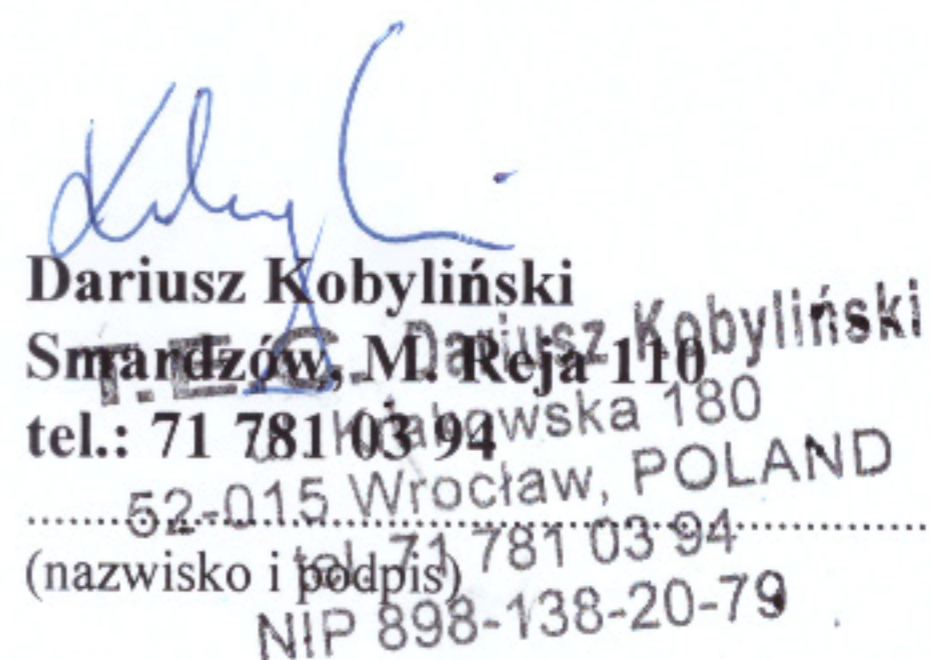 Dariusz Kobyliński
Smardzów, M. Reja 110
tel.: 71 781 03 94
(nazwisko i podpis)
T.E.C. Dariusz Kobyliński
Krakowska 180
52-015 Wrocław, POLAND
tel. 71 781 03 94
NIP 898-138-20-79